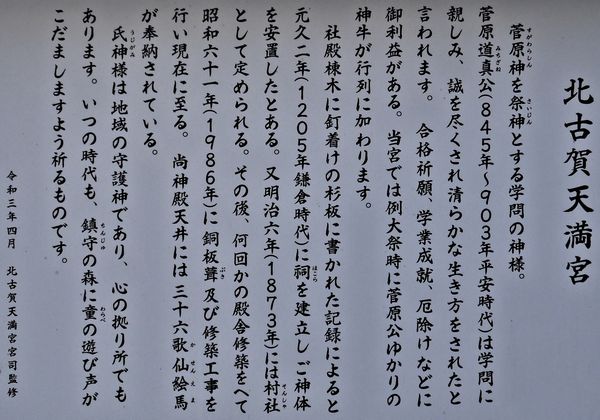 北古賀天満宮
菅原神を祭神とする学問の神様。
菅原道真公(845年〜903年平安時代)は学問に
親しみ、誠を尽くされ清らかな生き方をされたと
言われます。 合格祈願、学業成就、厄除けなどに
御利益がある。当宮では例大祭時に菅原公ゆかりの
神牛が行列に加わります。
社殿棟木に釘着けの杉板に書かれた記録によると
元久二年(1205年鎌倉時代)に祠を建立しご神体
を安置したとある。又明治六年(1873年)には村社
として定められる。その後、何回かの殿舎修築をへて
昭和六十一年(1986年)に銅板葺及び修築工事を
行い現在に至る。尚神殿天井には三十六歌仙絵馬
が奉納されている。
氏神様は地域の守護神であり、心の拠り所でも
あります。いつの時代も、鎮守の森に童の遊び声が
こだましますよう祈るものです。
令和三年四月 北古賀天満宮宮司監修